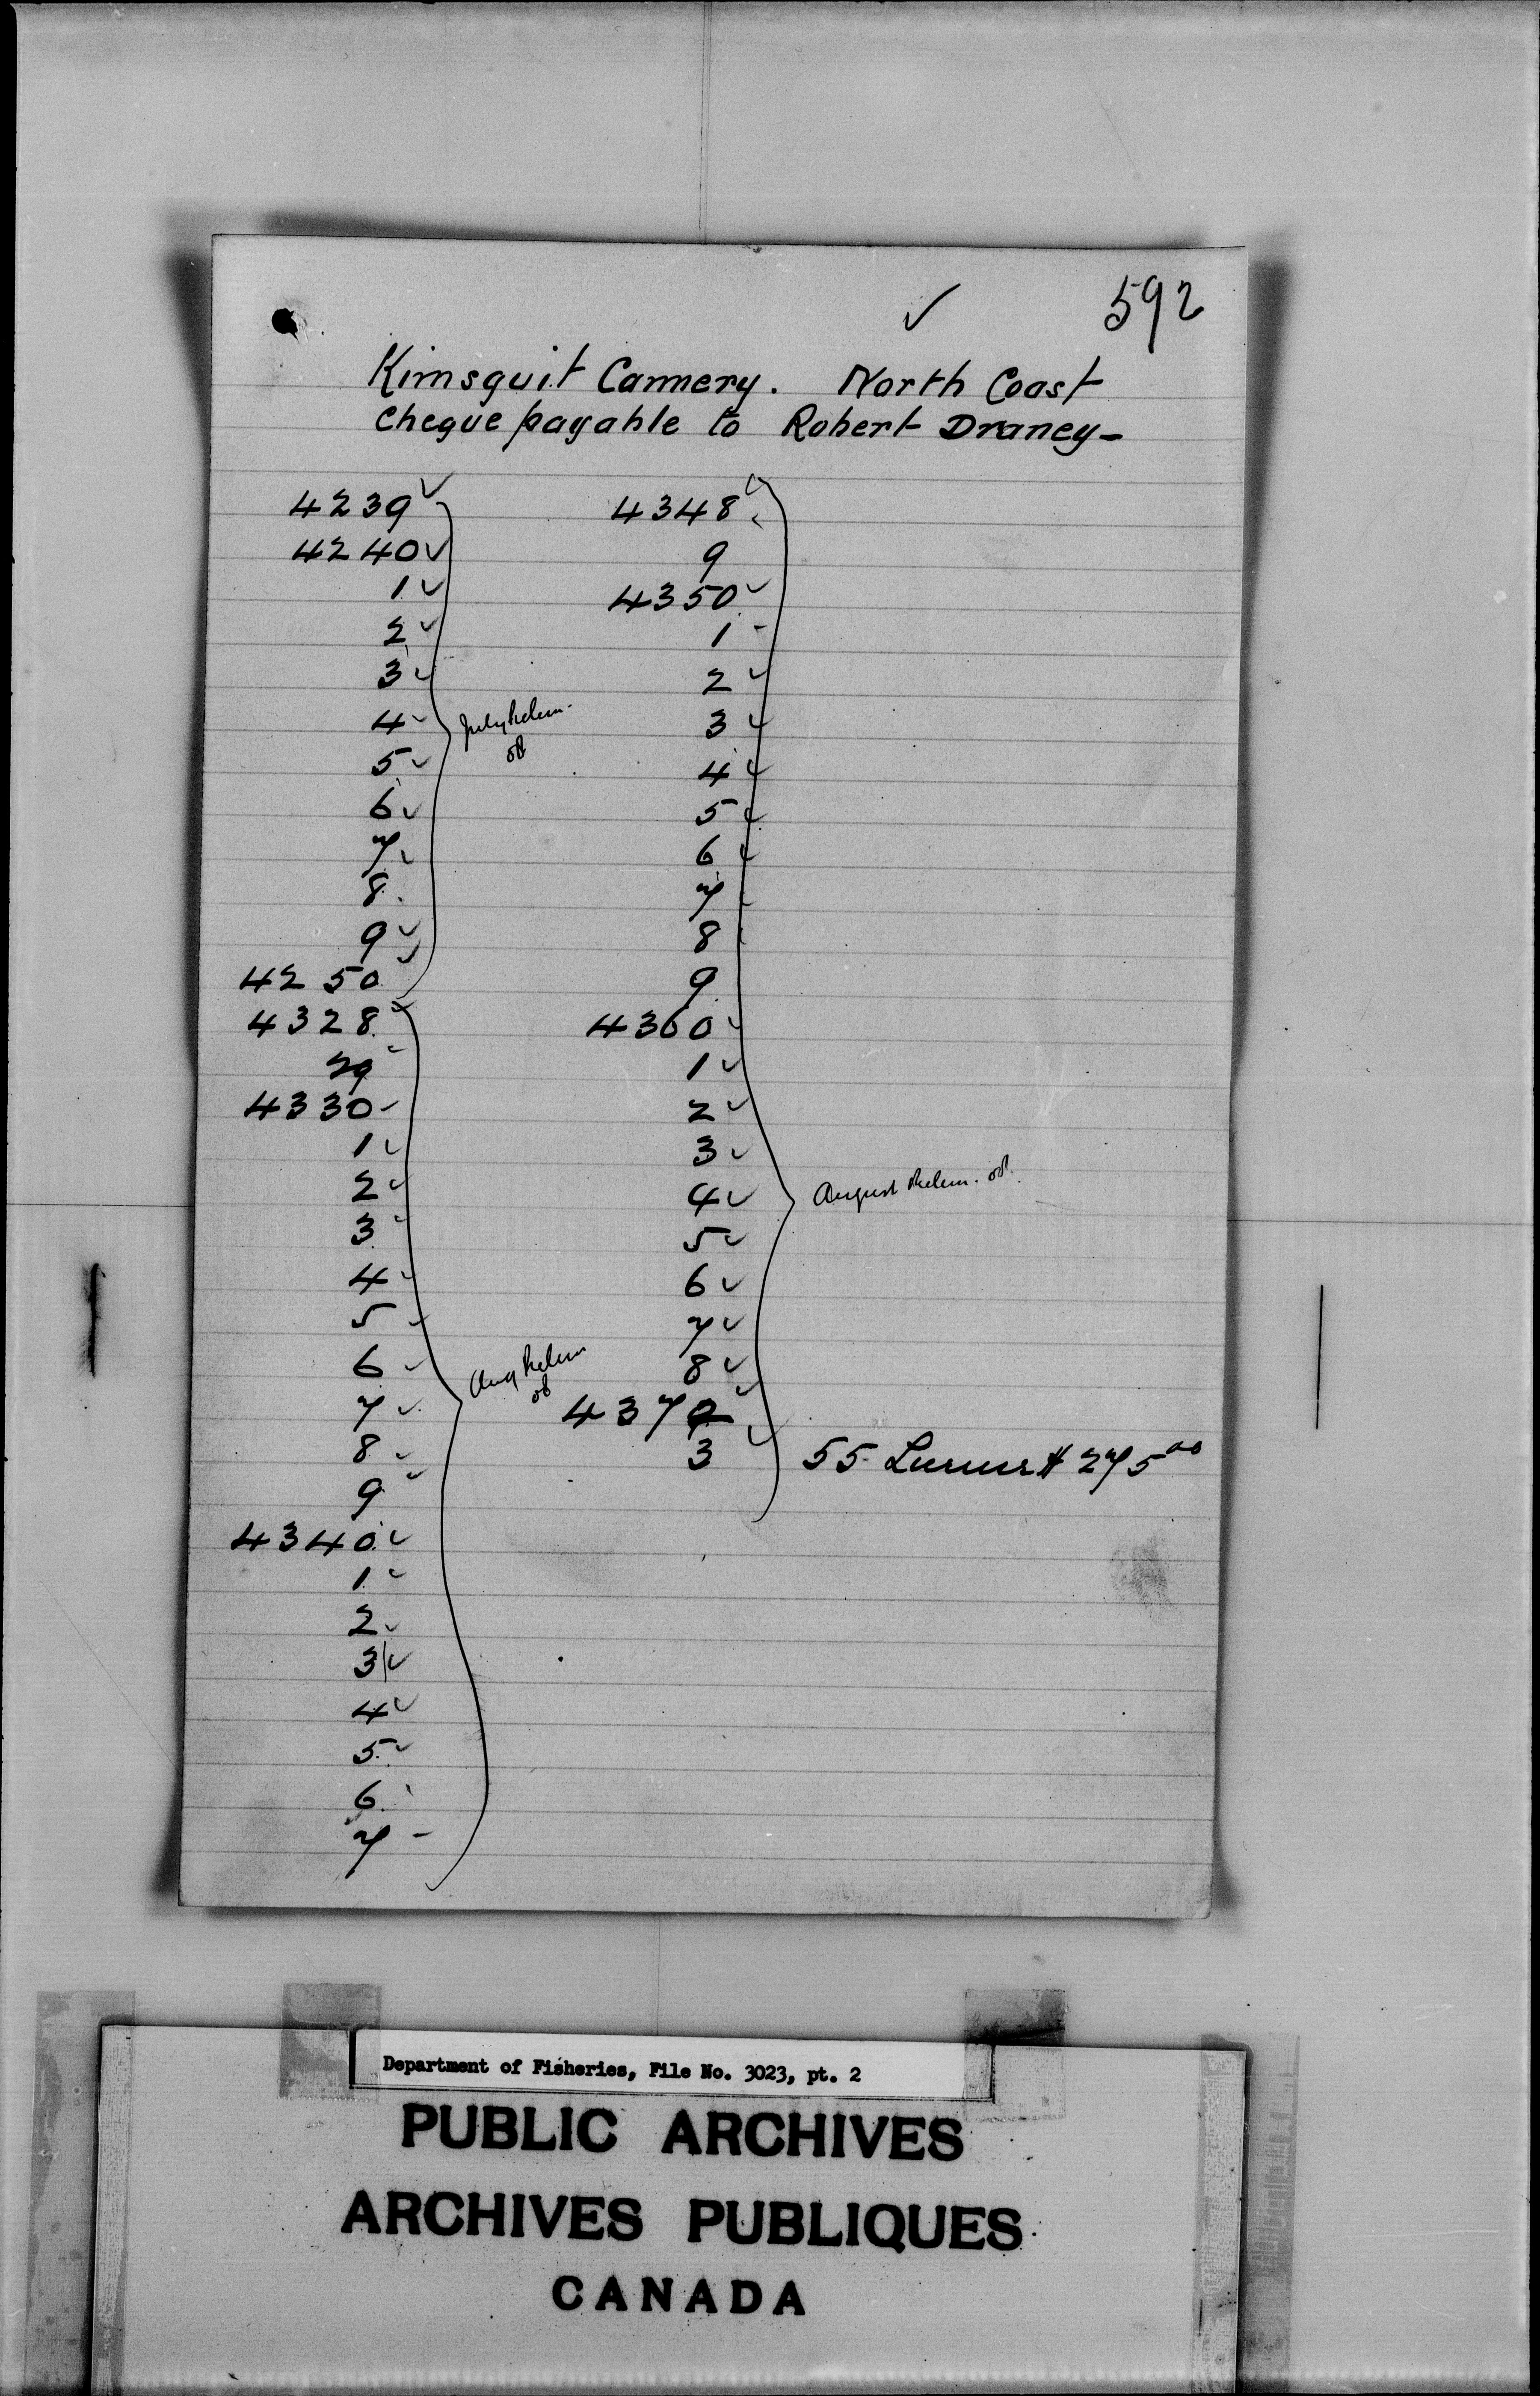 592
Kimsquit Cannery. North Coast
Cheque payable to Robert Draney-
4239
4240
1
2
3
4
5
6
7
8
9
4250
4328
29
4330
1
2
3
4
5
6
7
8
9
4340
1
2
3
4
5
6
7
July
Aug
4348
9
4350
1
2
3
4
5
6
7
8
9
4360
1
2
3
4
5
6
7
8
4372
3
August
55 $ 275 00
Department of Fisheries, File No. 3023, pt. 2
PUBLIC ARCHIVES
ARCHIVES PUBLIQUES
CANADA